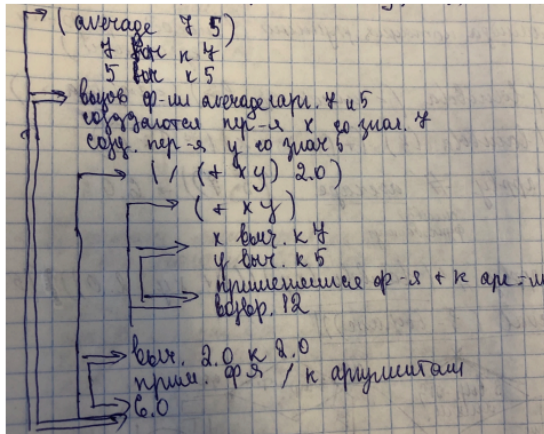 (average 7 5)
7 выч к 7
5 выч к 5
вызов ф-ии average с арг. 7 и 5
создаются пер-я x со знач. 7
созд. пер-я y со знач 5
(/ (+ x y) 2.0)
(+ x y)
x выч. к 7
y выч. к 5
применяется ф-я + к арг-м
возвр. 12
выч. 2.0 к 2.0
прим. ф-я / к аргументам
6.0